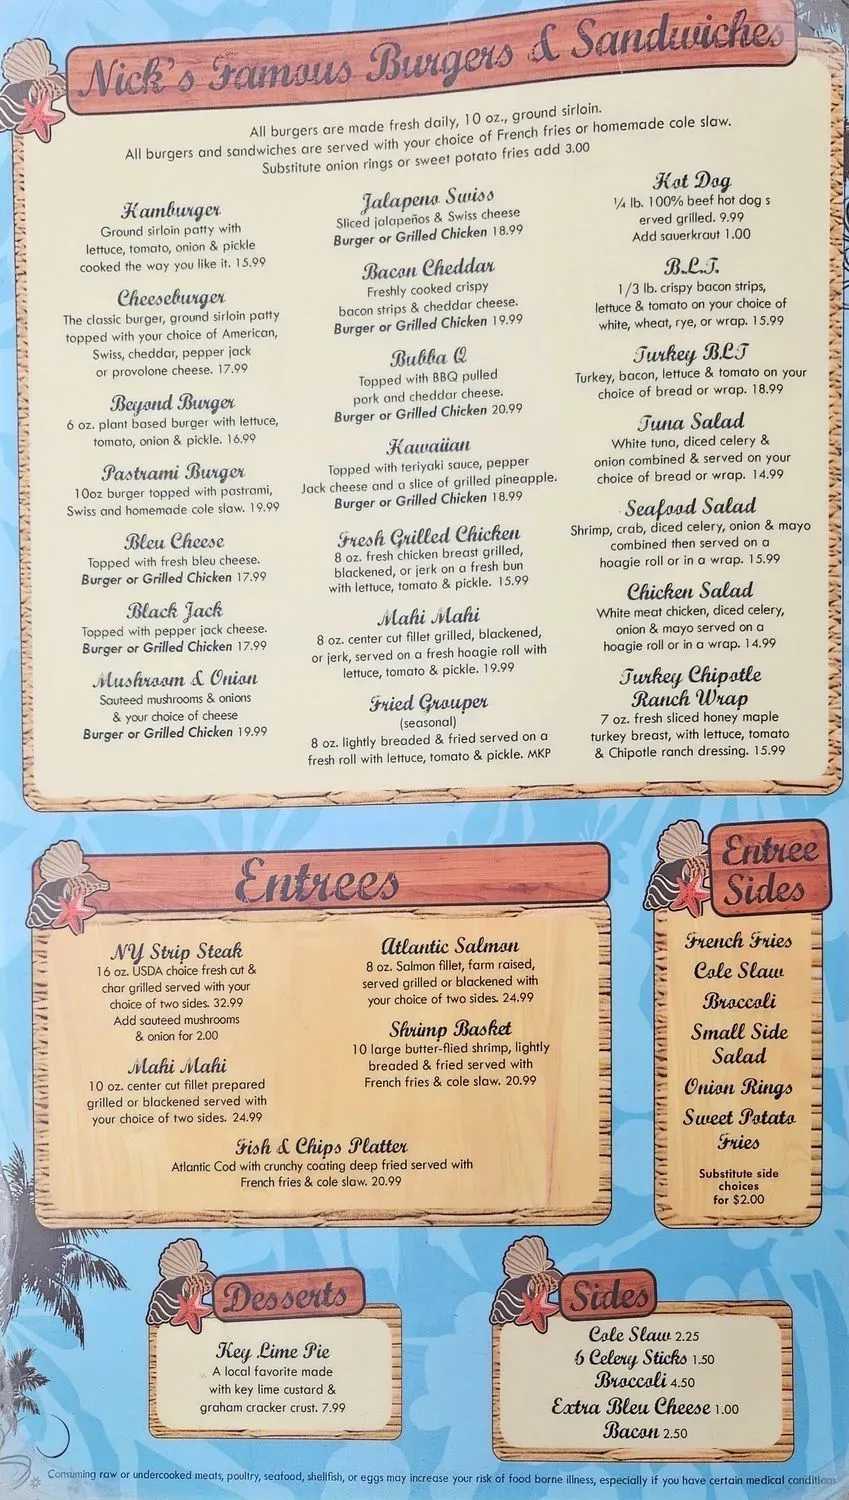 Nick's Famous Burgers & Sandwiches
All burgers are made fresh daily, 10 oz., ground sirloin.
All burgers and sandwiches are served with your choice of French fries or homemade cole slaw.
Substitute onion rings or sweet potato fries add 3.00
Hamburger
Ground sirloin patty with
lettuce, tomato, onion & pickle
cooked the way you like it. 15.99
Cheeseburger
The classic burger, ground sirloin patty
topped with your choice of American,
Swiss, cheddar, pepper jack
or provolone cheese. 17.99
Beyond Burger
6 oz. plant based burger with lettuce,
tomato, onion & pickle. 16.99
Pastrami Burger
10oz burger topped with pastrami,
Swiss and homemade cole slaw. 19.99
Bleu Cheese
Topped with fresh bleu cheese.
Burger or Grilled Chicken 17.99
Black Jack
Topped with pepper jack cheese.
Burger or Grilled Chicken 17.99
Mushroom & Onion
Sauteed mushrooms & onions
& your choice of cheese
Burger or Grilled Chicken 19.99
Jalapeno Swiss
Sliced jalapeños & Swiss cheese
Burger or Grilled Chicken 18.99
Bacon Cheddar
Freshly cooked crispy
bacon strips & cheddar cheese.
Burger or Grilled Chicken 19.99
Bubba Q
Topped with BBQ pulled
pork and cheddar cheese.
Burger or Grilled Chicken 20.99
Hawaiian
Topped with teriyaki sauce, pepper
Jack cheese and a slice of grilled pineapple.
Burger or Grilled Chicken 18.99
Fresh Grilled Chicken
8 oz. fresh chicken breast grilled,
blackened, or jerk on a fresh bun
with lettuce, tomato & pickle. 15.99
Mahi Mahi
8 oz. center cut fillet grilled, blackened,
or jerk, served on a fresh hoagie roll with
lettuce, tomato & pickle. 19.99
Fried Grouper
(seasonal)
8 oz. lightly breaded & fried served on a
fresh roll with lettuce, tomato & pickle. MKP
Hot Dog
¼ lb. 100% beef hot dog s
erved grilled. 9.99
Add sauerkraut 1.00
B.L.T.
1/3 lb. crispy bacon strips,
lettuce & tomato on your choice of
white, wheat, rye, or wrap. 15.99
Turkey BLT
Turkey, bacon, lettuce & tomato on your
choice of bread or wrap. 18.99
Tuna Salad
White tuna, diced celery &
onion combined & served on your
choice of bread or wrap. 14.99
Seafood Salad
Shrimp, crab, diced celery, onion & mayo
combined then served on a
hoagie roll or in a wrap. 15.99
Chicken Salad
White meat chicken, diced celery,
onion & mayo served on a
hoagie roll or in a wrap. 14.99
Turkey Chipotle
Ranch Wrap
7 oz. fresh sliced honey maple
turkey breast, with lettuce, tomato
& Chipotle ranch dressing. 15.99
Entrees
NY Strip Steak
16 oz. USDA choice fresh cut &
char grilled served with your
choice of two sides. 32.99
Add sauteed mushrooms
& onion for 2.00
Mahi Mahi
10 oz. center cut fillet prepared
grilled or blackened served with
your choice of two sides. 24.99
Atlantic Salmon
8 oz. Salmon fillet, farm raised,
served grilled or blackened with
your choice of two sides. 24.99
Shrimp Basket
10 large butter-flied shrimp, lightly
breaded & fried served with
French fries & cole slaw. 20.99
Fish & Chips Platter
Atlantic Cod with crunchy coating deep fried served with
French fries & cole slaw. 20.99
Entree
Sides
French Fries
Cole Slaw
Broccoli
Small Side
Salad
Onion Rings
Sweet Potato
Fries
Substitute side
choices
for $2.00
Desserts
Key Lime Pie
A local favorite made
with key lime custard &
graham cracker crust. 7.99
Sides
Cole Slaw 2.25
6 Celery Sticks 1.50
Broccoli 4.50
Extra Bleu Cheese 1.00
Bacon 2.50
Consuming raw or undercooked meats, poultry, seafood, shellfish, or eggs may increase your risk of food borne illness, especially if you have certain medical conditions